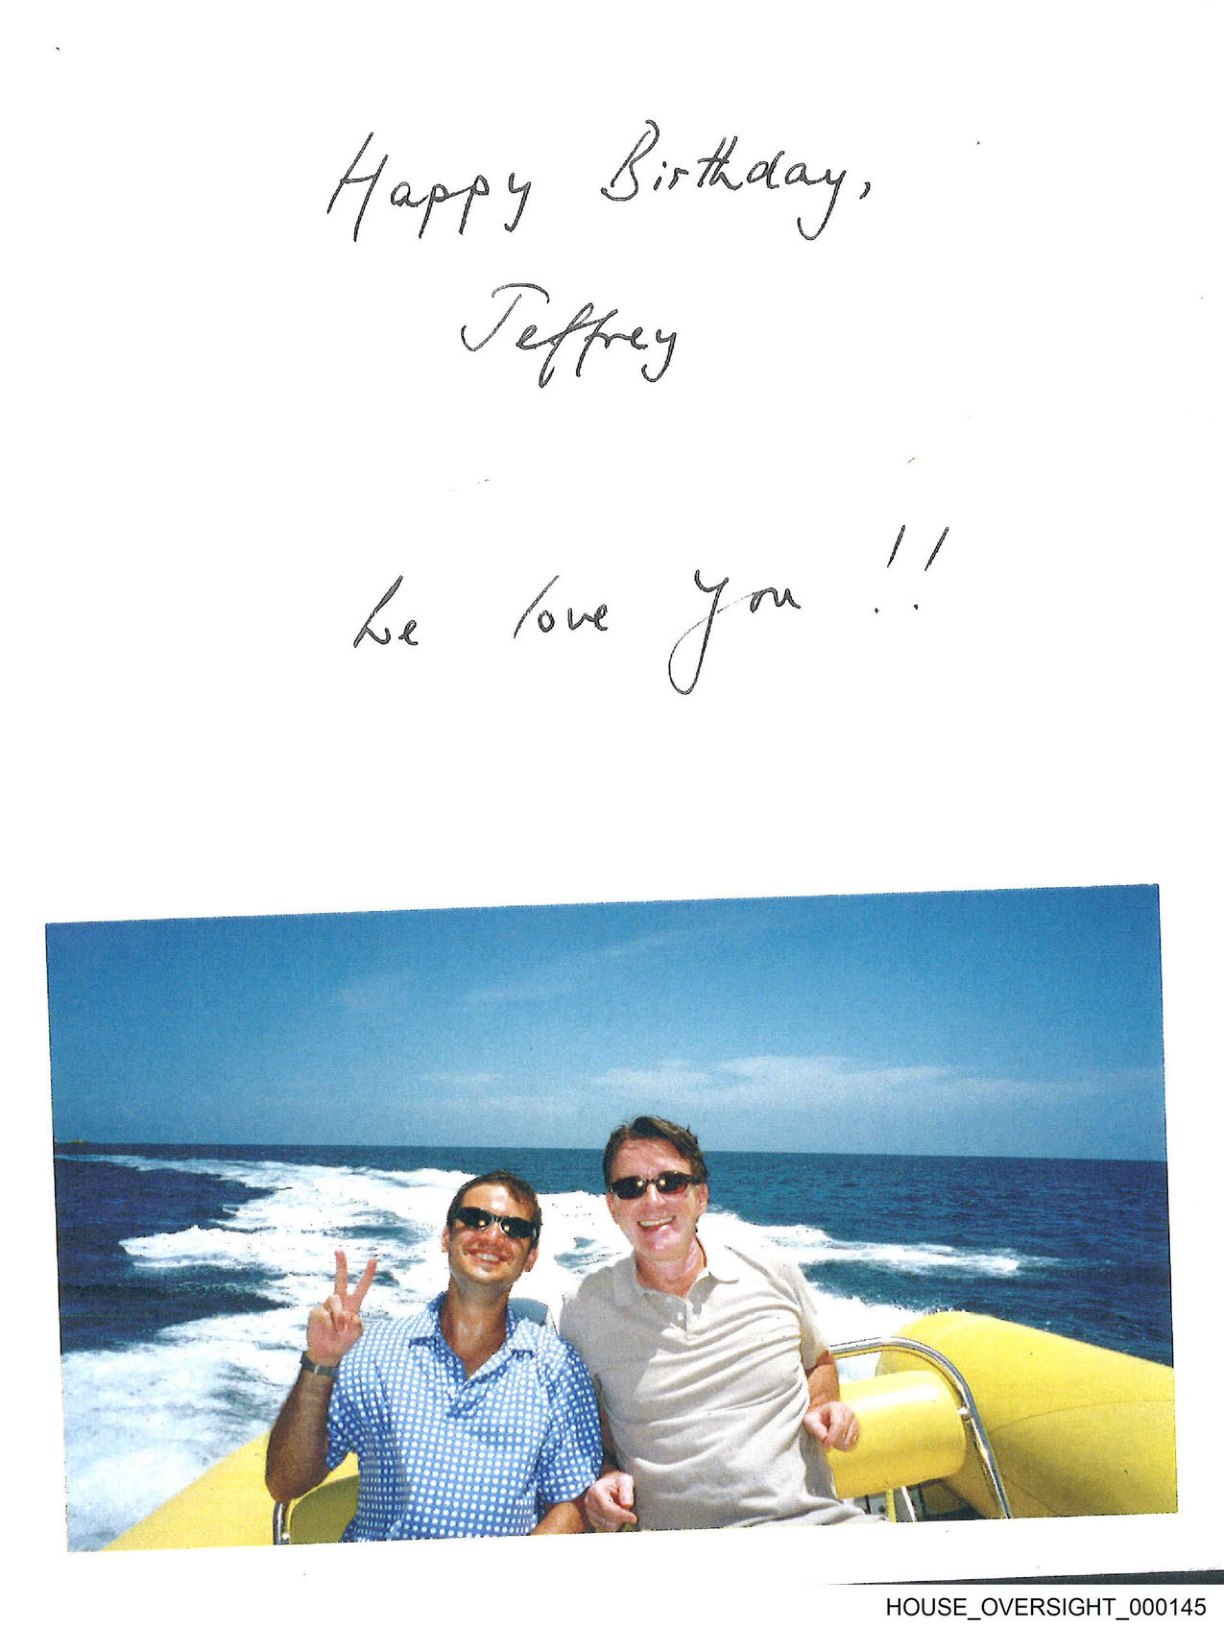 Happy Birthday,
Jeffrey
We love you !!
HOUSE_OVERSIGHT_000145